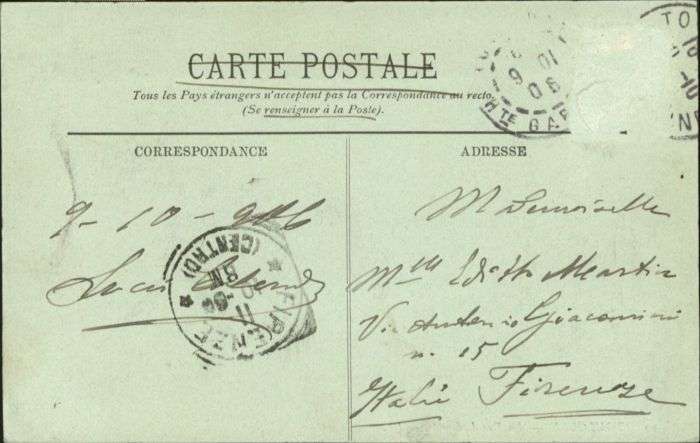 CARTE POSTALE
Tous les Pays étrangers n'acceptent pas la Correspondance au recto.
(Se renseigner à la Poste).
CORRESPONDANCE
ADRESSE
9-10-906
Mademoiselle
Mlle Editto
V. Antonio Giacomini
n. 15
Italie Firenze
FIRENZE
(CENTRO)
Hte GAR